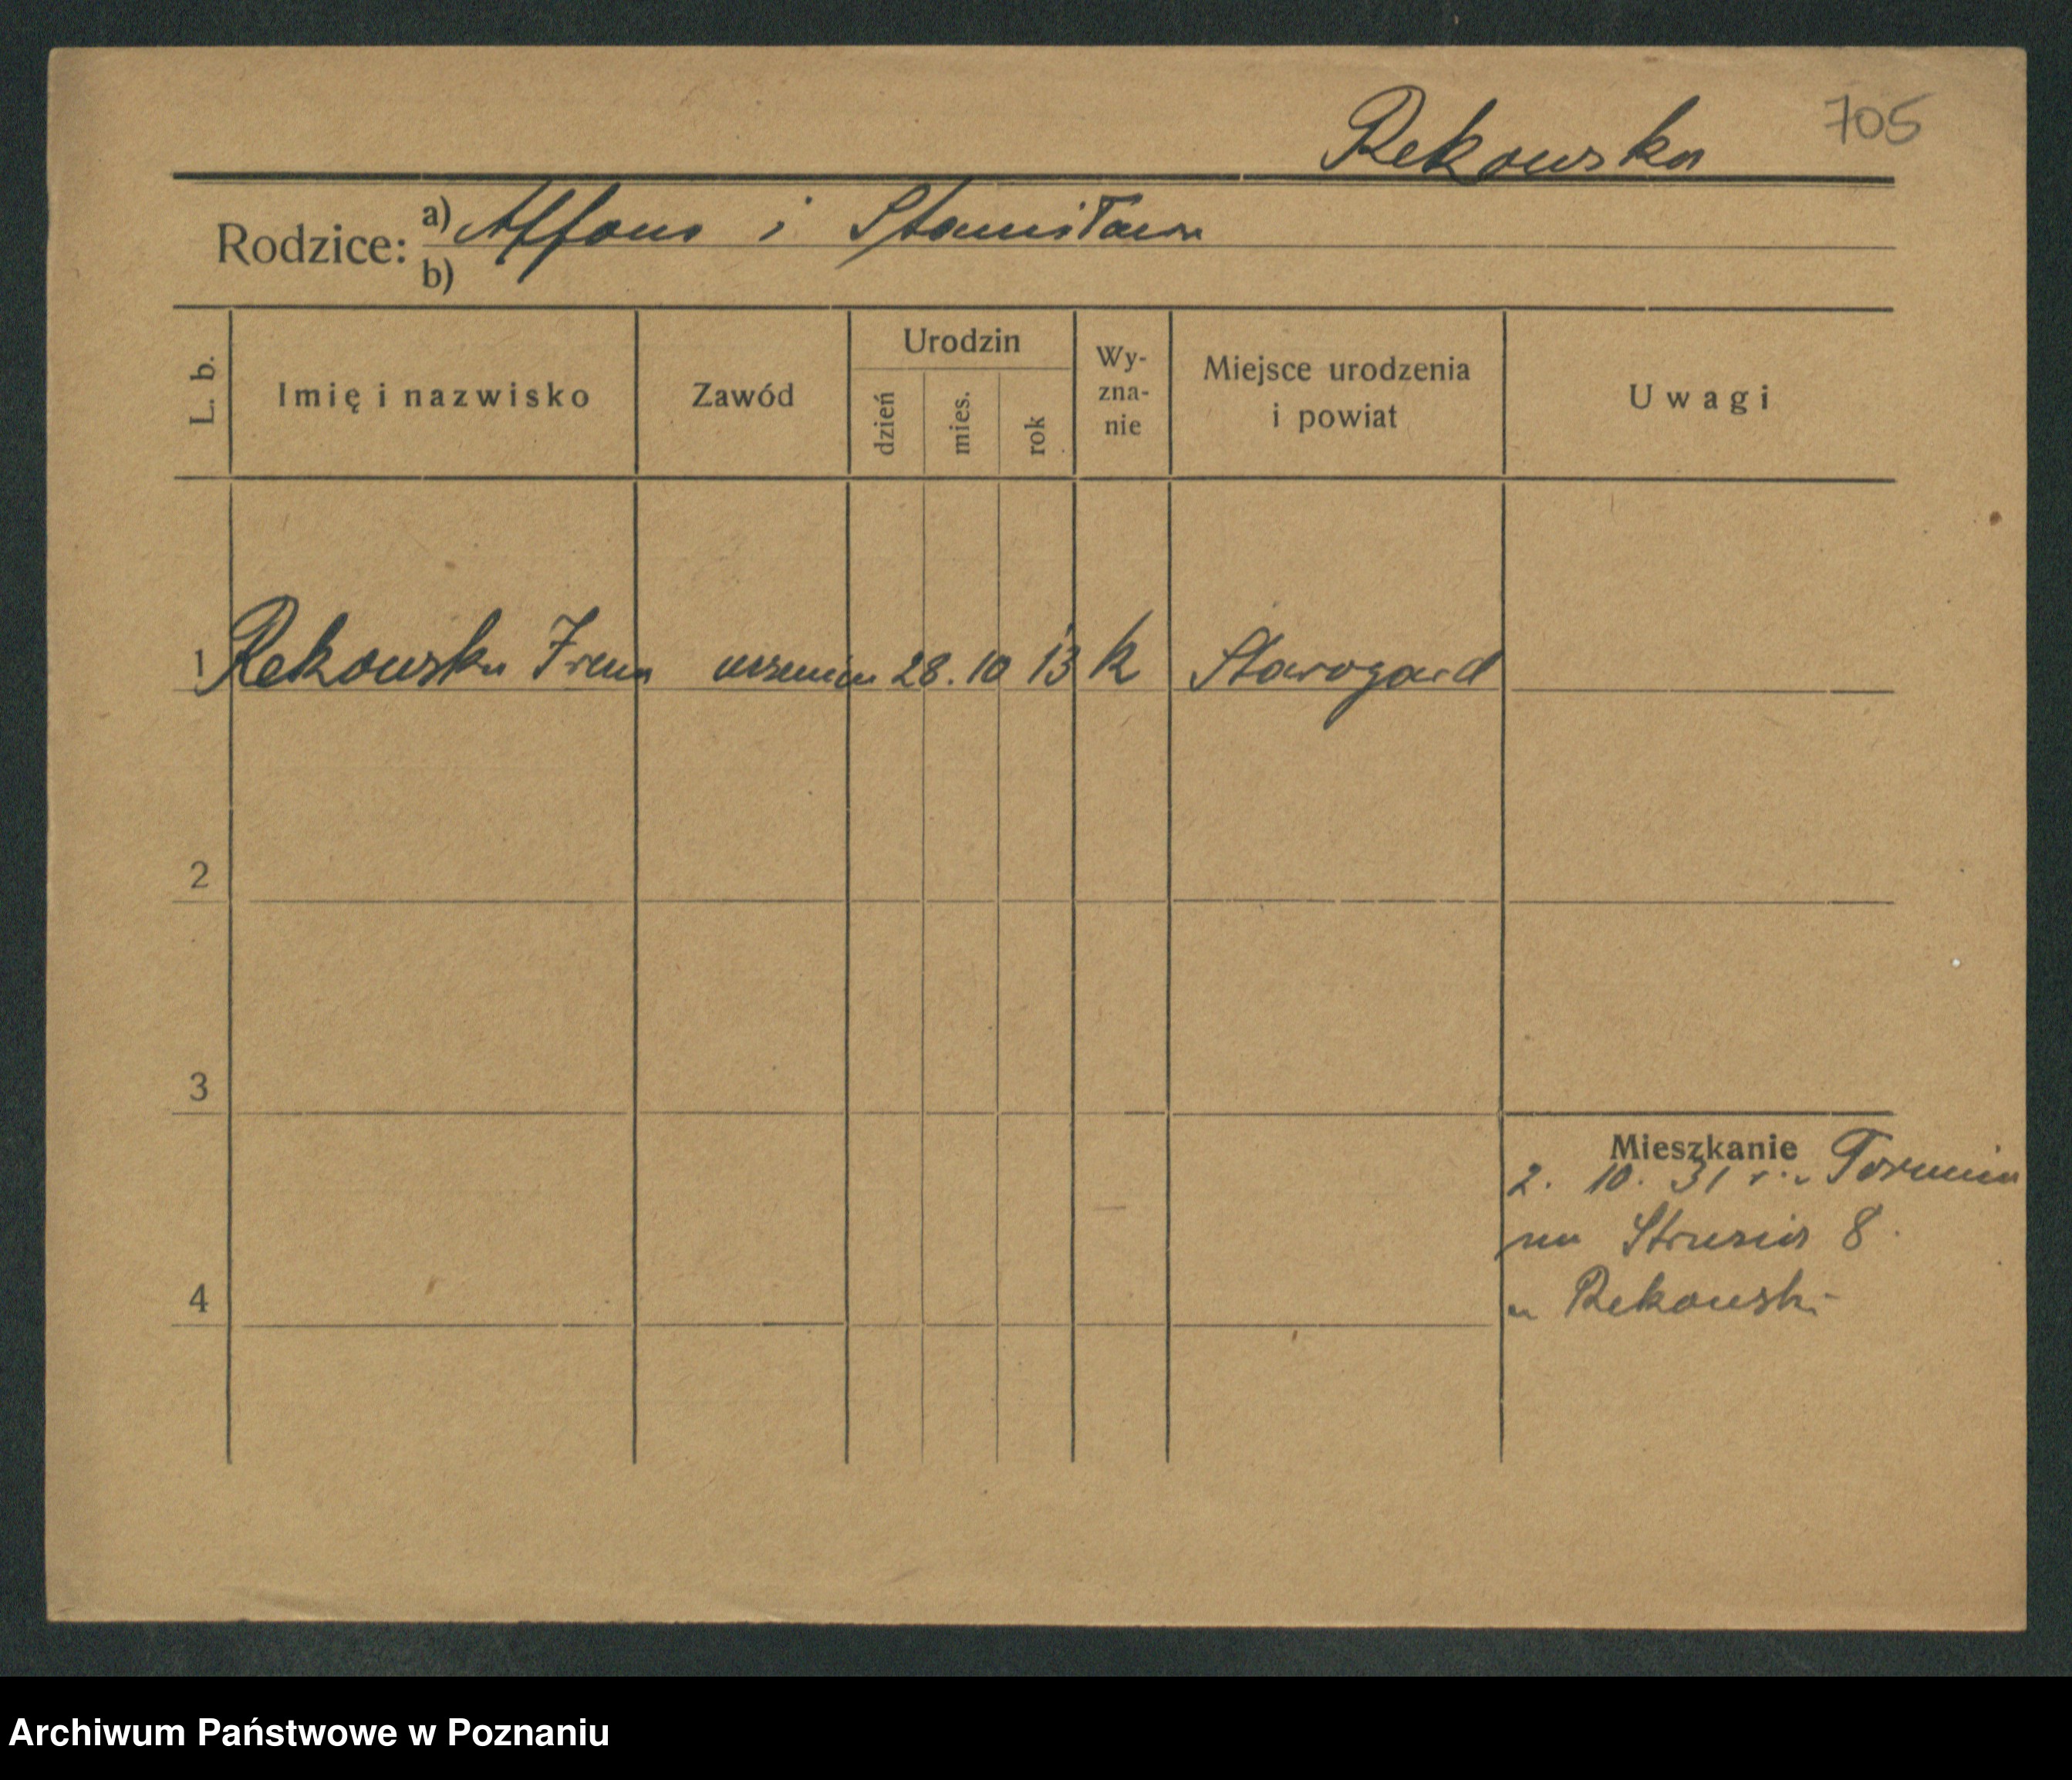 Rekowska 705
Rodzice: a) Alfons i Stanisława
b)
L. b. Imię i nazwisko Zawód Urodzin dzień mies. rok Wy-zna-nie Miejsce urodzenia i powiat Uwagi
1 Rekowska Irena uczenica 28. 10 13 k Starogard
2
3
Mieszkanie
2. 10. 31 r. z Torunia
na Strusia 8.
u Rekowski
4
Archiwum Państwowe w Poznaniu